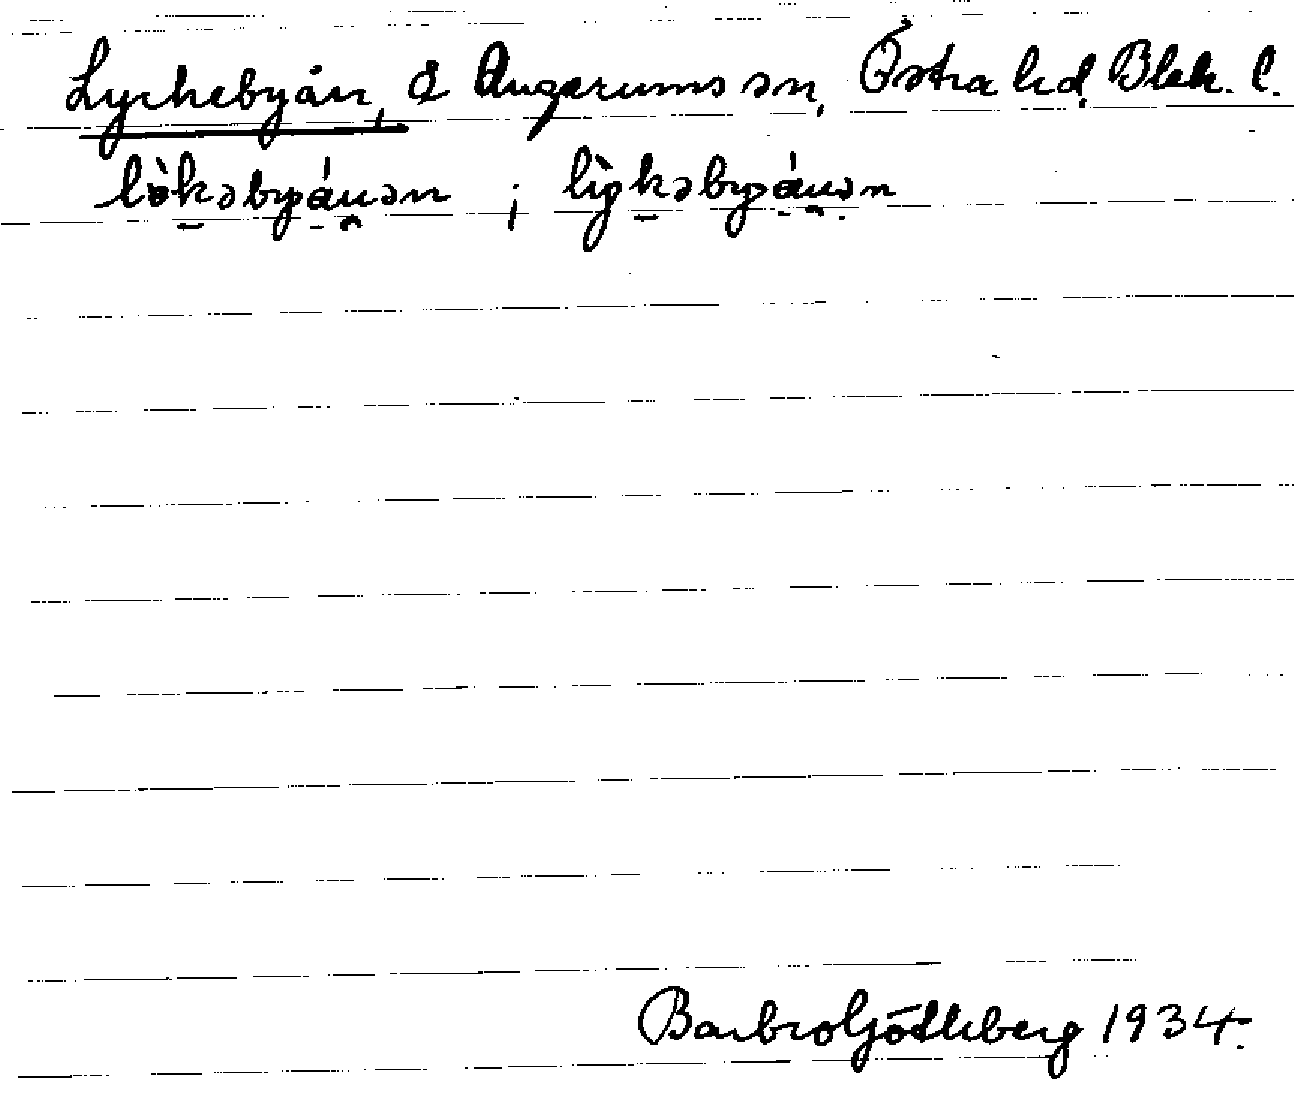 Lyckebyån, å Augerums sn, Östra hd. Blek. l.
lòkəbyáuən ; lỳkəbyáuən
Barbro Götheberg 1934.